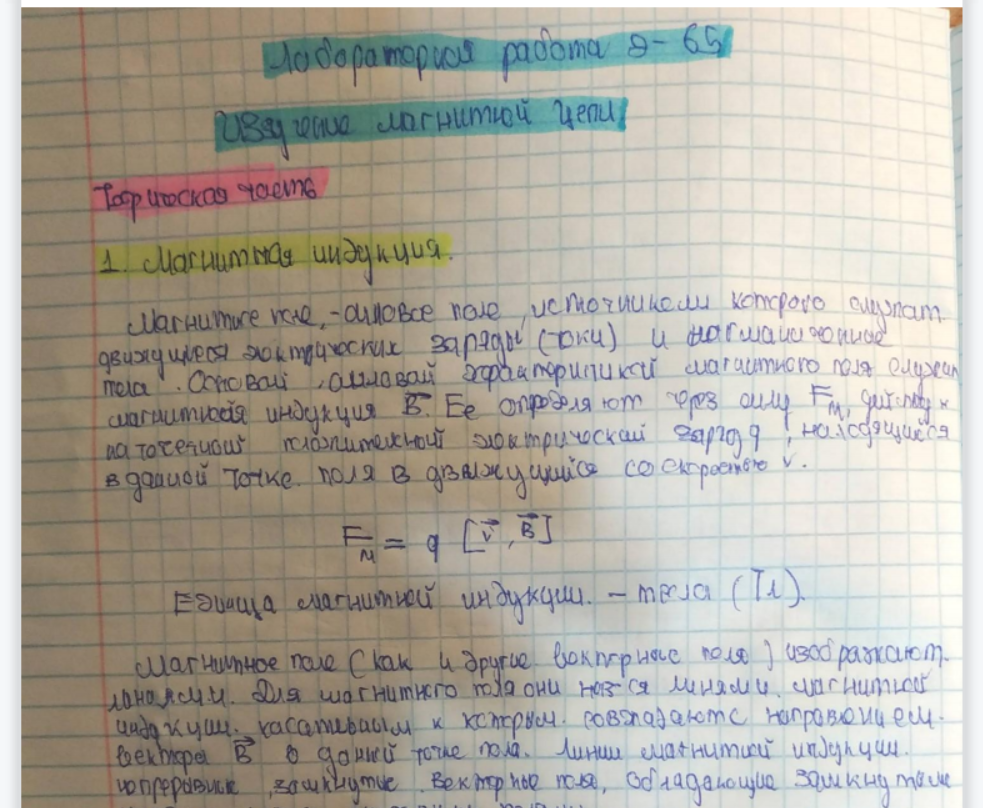 Лабораторная работа Э-65
Изучение магнитной цепи
Теорическая часть
1. Магнитная индукция.
Магнитное поле, - силовое поле, источником которого служат
движущиеся электрических заряды (токи) и намагниченные
тела. Основой, силовой характиристикой магнитного поля служит
магнитной индукция B. Ее определяют через силу Fм, действую
на точечный положительной электрической заряд q, находящийся
в данной точке поля в движущийся со скоростью v.
Fм = q [v, B]
Единица магнитной индукции. - тесла (Тл).
Магнитное поле (как и другие векторные поля) изображают
линиями. Для магнитного поля они наз-ся линями магнитной
индукции. касательным к которым. совпадают с направлением.
вектора B в данной точке поля. Линии магнитной индукции.
непрерывные, замкнутые. Векторные поля, обладающие замкнутыми